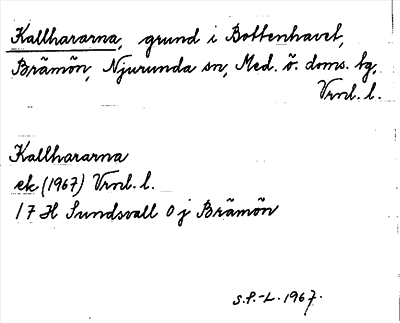 Kallhararna, grund i Bottenhavet,
Brämön, Njurunda sn, Med. ö. doms. tg,
Vrnl. l.
Kallhararna
ek (1967) Vrnl. l.
17 H Sundsvall 0 j Brämön
S.P.-L. 1967.